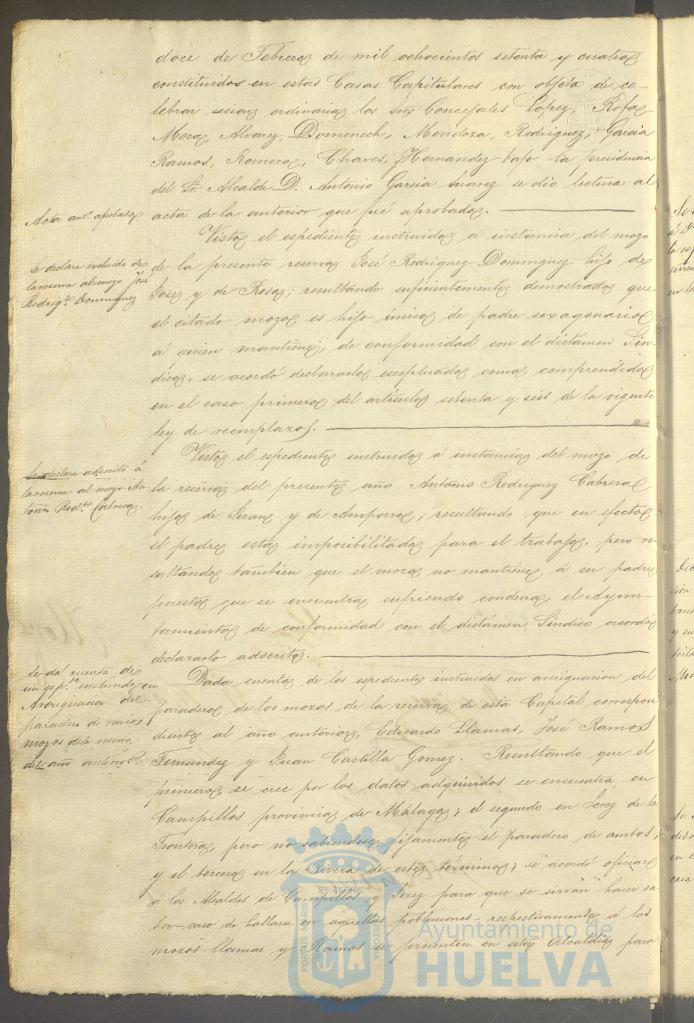 doce de Febrero de mil ochocientos setenta y cuatro
constituidos en estas Casas Capitulares con objeto de ce-
lebrar sesion ordinaria los Sres Concejales Lopez, Rofa
Mora, Alvarez, Domenech, Mendoza, Rodriguez, Garcia
Ramos, Romero, Chaves, Hernandez bajo la presidencia
del Sr. Alcalde D. Antonio Garcia Suarez se dió lectura al
Acta antr. aprobada
acta de la anterior que fué aprobada.
Visto el espediente instruido á instancia del mozo
Se declara escluido de
la reserva al mozo José
Rodrigz. Dominguez
de la presente reserva José Rodriguez Dominguez hijo de
José y de Rosa; resultando suficientemente demostrado que
el citado mozo es hijo único de padre sexagenario
á quien mantiene, de conformidad con el dictámen Sín-
dico, se acordó declararlo esceptuado como comprendido
en el caso primero del artículo setenta y seis de la vigente
ley de reemplazos.
Visto el espediente instruido á instancia del mozo de
Se declara adscrito á
la reserva al mozo An-
tonio Rodz. Cabrera.
la reserva del presente año Antonio Rodriguez Cabrera
hijo de Juan y de Amparo; resultando que en efecto
el padre está imposibilitado para el trabajo, pero re-
sultando tambien que el mozo no mantiene á su padre
puesto que se encuentra sufriendo condena, el Ayun-
tamiento de conformidad con el dictámen Síndico acordó
declararlo adscrito.
Se dá cuenta de
un espte. instruido en
Averiguacion del
paradero de varios
mozos de la reserva
del año anterior.
Dada cuenta de los espedientes instruidos en averiguacion del
paradero de los mozos de la reserva de esta Capital correspon-
diente al año anterior, Eduardo Llamas, José Ramos
Fernandez y Juan Castilla Gomez. Resultando que el
primero se cree por los datos adquiridos se encuentra en
Campillos provincia de Malaga; el segundo en Jerez de la
Frontera, pero no sabiendose fijamente el paradero de ambos;
y el tercero en la Rivera de este término, se acordó oficiar
á los Alcaldes de Campillos y Jerez para que se sirvan hacer sa-
ber-caso de hallarse en aquellas poblaciones-respectivamente á los
mozos Llamas y Ramos se presenten en esta Alcaldia para
Ayuntamiento de
HUELVA